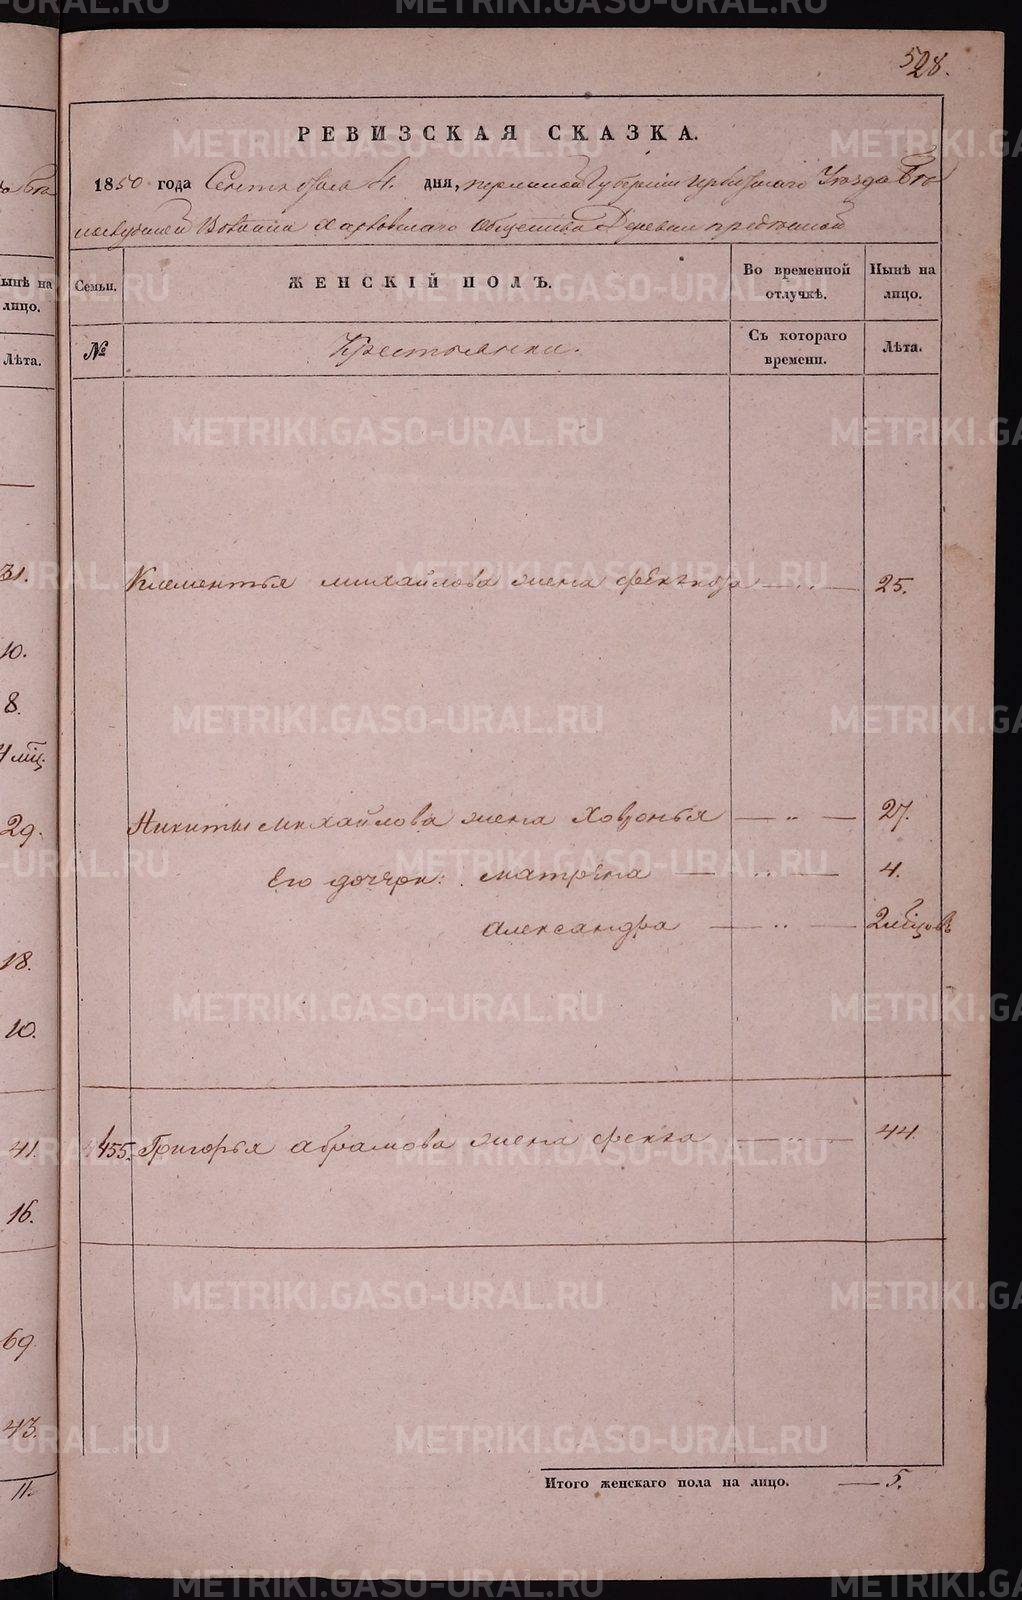 528.
РЕВИЗСКАЯ СКАЗКА.
1850 года Сентября дня, пермской Губернии Ирбитскаго Уезда Бго
волости Харловскаго Общества Деревни
Семьи.
ЖЕНСКІЙ ПОЛЪ.
Во временной отлучкѣ.
Нынѣ на лицо.
№
Крестьянки.
Съ котораго времени.
Лѣта.
Клементья михайлова жена 25.
Никиты михайлова жена Ховронья 27.
Его дочери: матрена 4.
александра 2 мѣсцовъ
455. Григорья абрамова жена фекла 44.
Итого женскаго пола на лицо. 5.
ынѣ на
лицо.
Лѣта.
31.
10.
8.
29.
18.
10.
41.
16.
69
43.
11.
METRIKI.GASO-URAL.RU